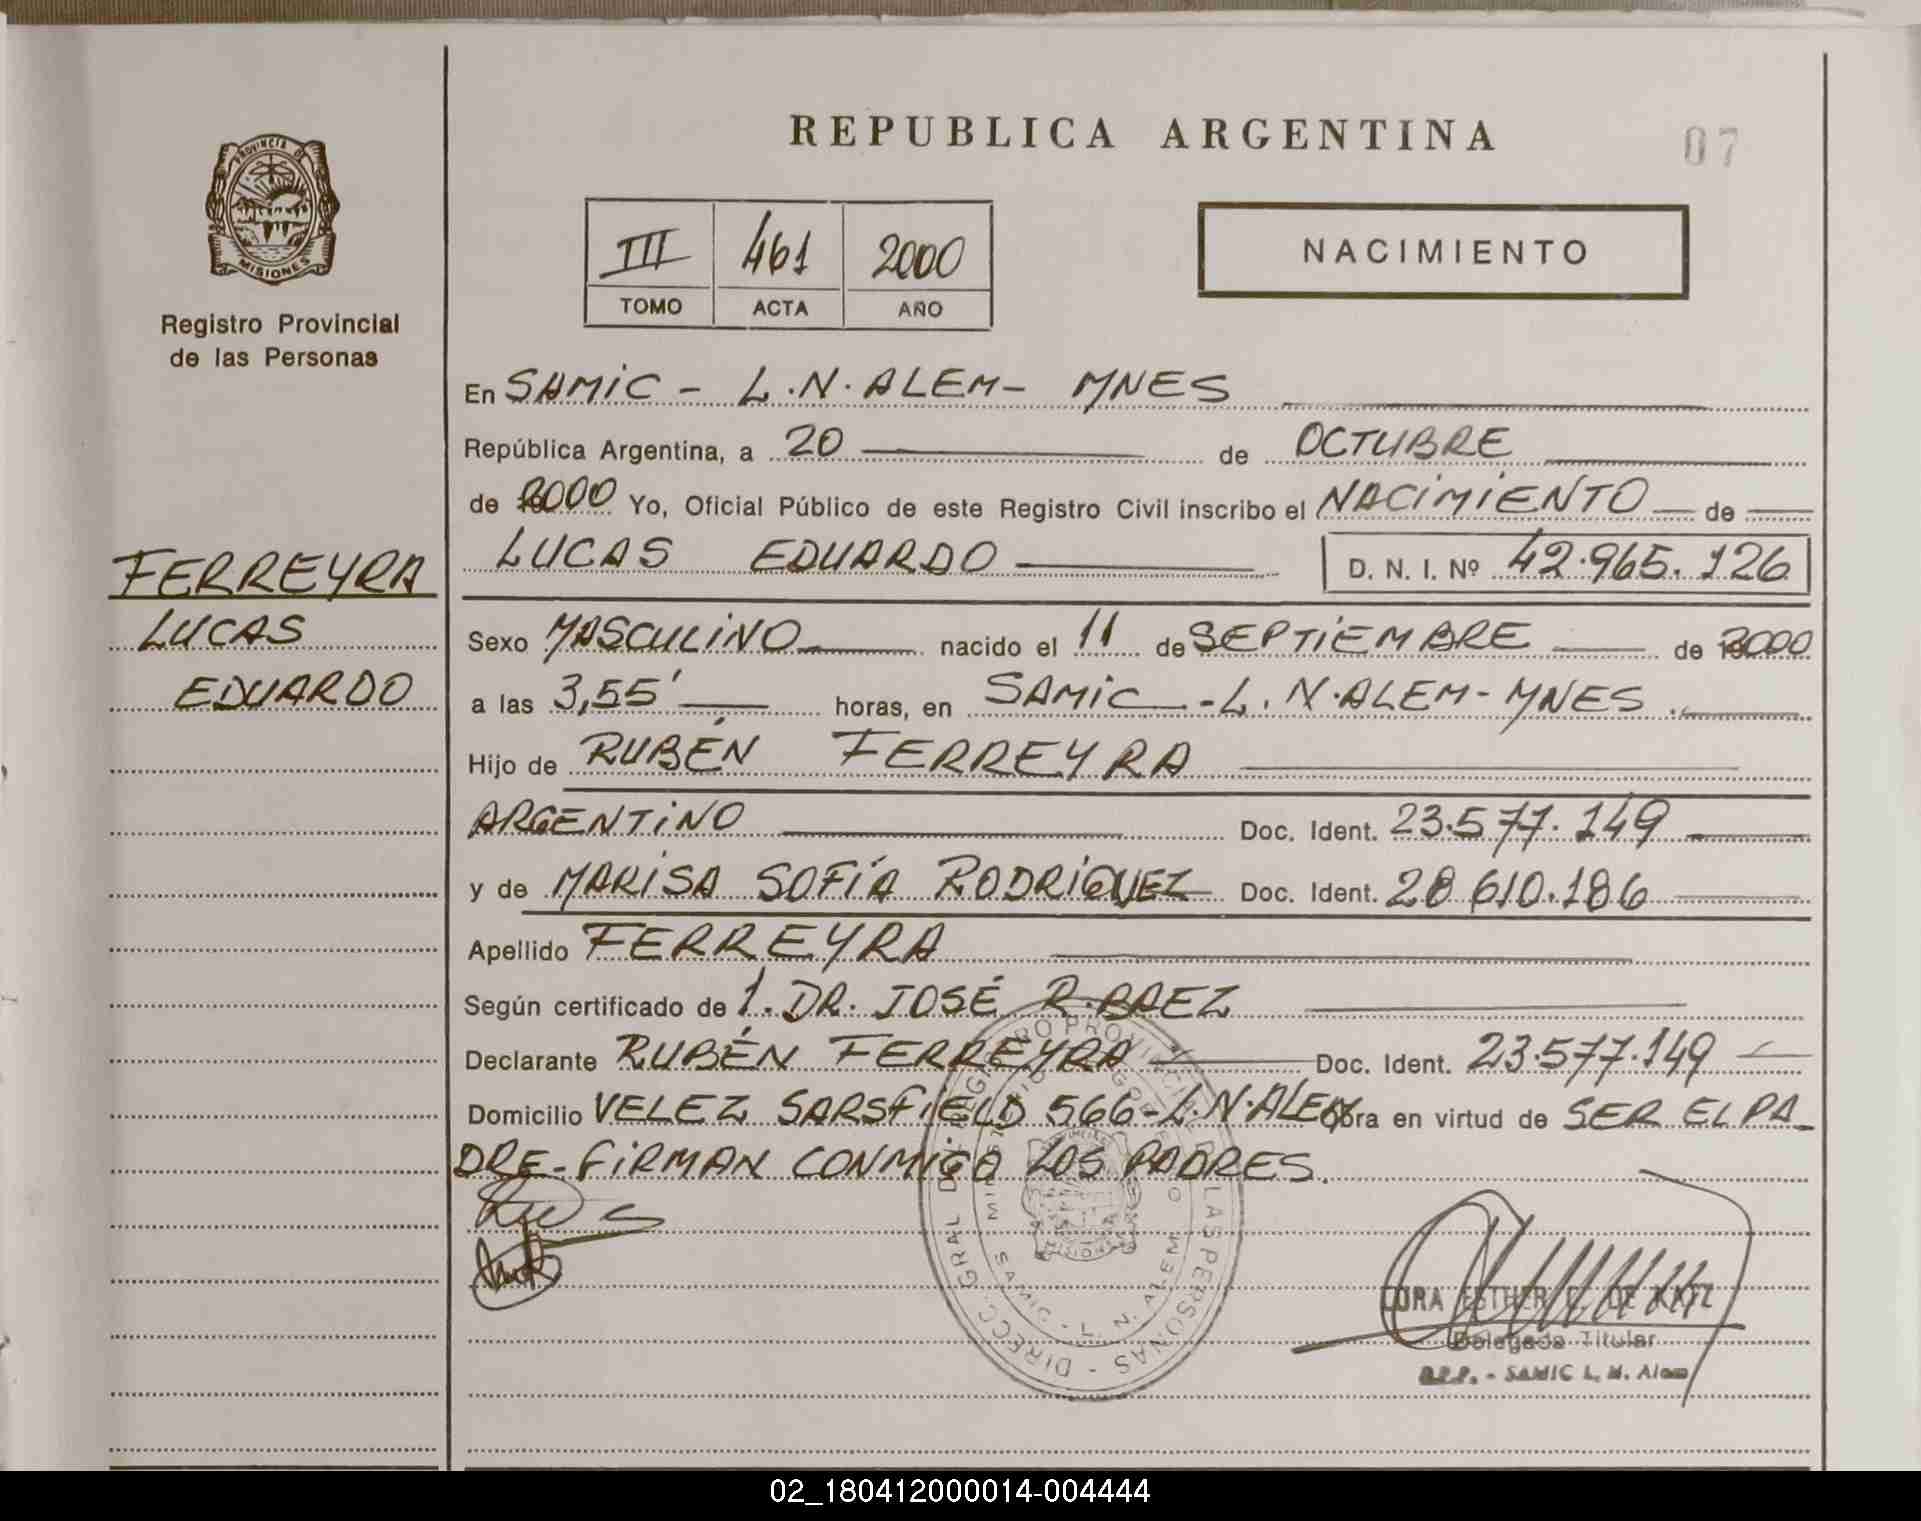 REPUBLICA ARGENTINA
07
PROVINCIA DE
MISIONES
Registro Provincial
de las Personas
III 461 2000
TOMO ACTA AÑO
NACIMIENTO
En SAMIC - L.N. ALEM - MNES
República Argentina, a 20 de OCTUBRE
de 2000 Yo, Oficial Público de este Registro Civil inscribo el NACIMIENTO de
LUCAS EDUARDO D. N. I. Nº 42.965.126
FERREYRA
LUCAS
EDUARDO
Sexo MASCULINO nacido el 11 de SEPTIEMBRE de 2000
a las 3,55' horas, en SAMIC - L.N. ALEM - MNES.
Hijo de RUBÉN FERREYRA
ARGENTINO Doc. Ident. 23.577.149
y de MARISA SOFÍA RODRIGUEZ Doc. Ident. 28.610.186
Apellido FERREYRA
Según certificado de 1. DR. JOSÉ R. BAEZ
Declarante RUBÉN FERREYRA Doc. Ident. 23.577.149
Domicilio VELEZ SARSFIELD 566 - L.N. ALEM Obra en virtud de SER EL PA-
DRE - FIRMAN CONMIGO LOS PADRES.
DIRECC. GRAL DE REGISTRO PROVINCIAL DE LAS PERSONAS
MINISTERIO DE GOBIERNO
SAMIC - L. N. ALEM
MISIONES
ESTHER DE
Delegada Titular
R.P.P. - SAMIC L. N. Alem
02_180412000014-004444